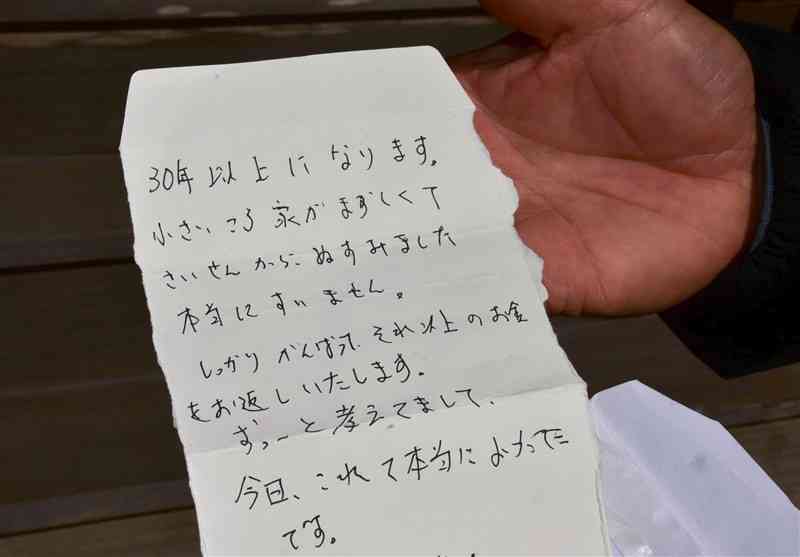 30年以上になります。
小さいころ家がまずしくて
さいせんから、ぬすみました
本当にすいません。
しっかりがんばって、それ以上のお金
をお返しいたします。
ずっーと考えてまして、
今日、これて本当によかった
です。